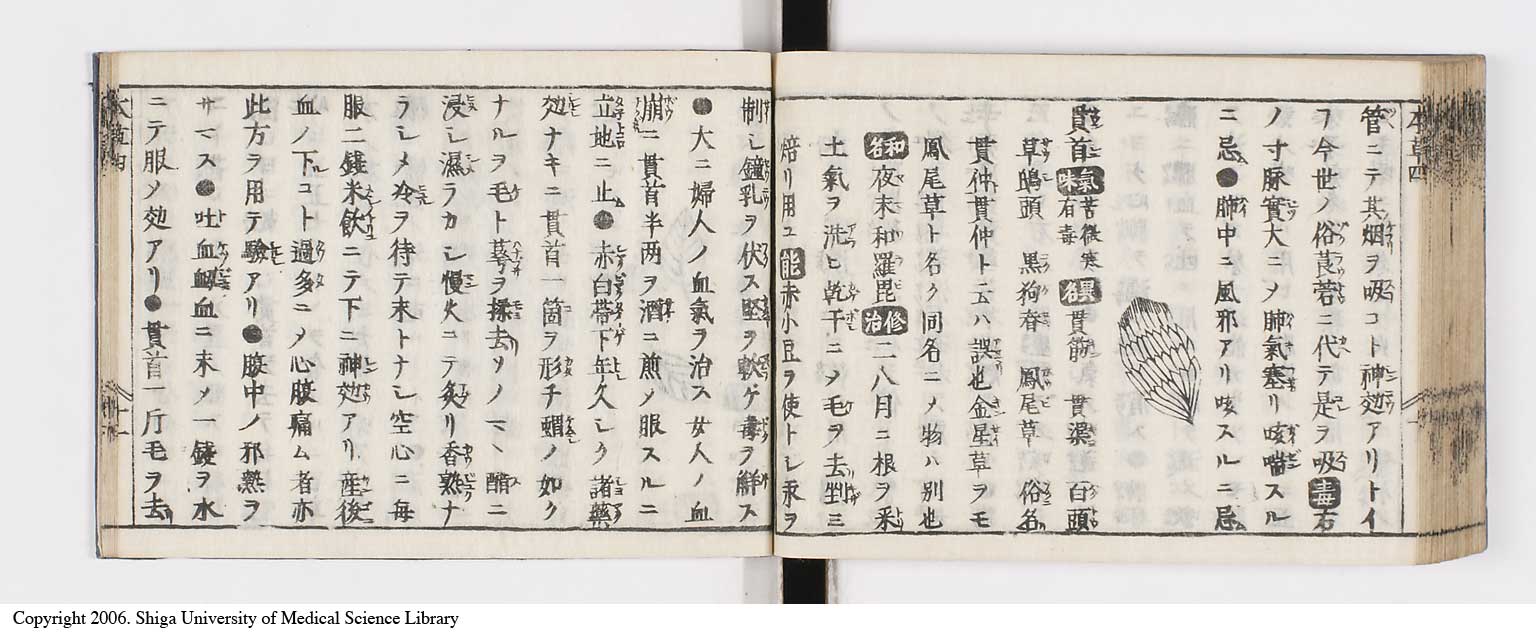 本草四
管ニテ其烟ヲ吸コト神效アリトイ
フ今世ノ俗莨菪ニ代テ是ヲ吸毒右
ノ寸脉實大ニメ肺氣塞リ咳喘スル
ニ忌●肺中ニ風邪アリ咳スルニ忌
貫首氣味苦微寒有毒異名貫節 貫渠 百頭
草鴟頭 黒狗脊 鳳尾草 俗名
貫仲貫仲ト云ハ誤也金星草ヲモ
鳳尾草ト名ク同名ニメ物ハ别也
和名夜末和羅毘修治二八月ニ根ヲ采
土氣ヲ洗ヒ乾干ニメ毛ヲ去剉三
焙リ用ユ能赤小豆ヲ使トレ汞ヲ
制シ鐘乳ヲ伏ス堅ヲ軟ゲ毒ヲ解ス
●大ニ婦人ノ血氣ヲ治ス女人ノ血
崩ニ貫首半两ヲ酒ニ煎メ服スルニ
立地ニ止●赤白帶下年久シク諸藥
效ナキニ貫首一箇ヲ形チ蝟ノ如ク
ナルヲ毛ト萼ヲ揉去ソノマヽ醋ニ
浸シ濕ラカシ慢火ニテ炙リ香熟ナ
ラシメ冷ヲ待テ末トナシ空心ニ毎
服二錢米飲ニテ下ニ神效アリ産後
血ノ下コト過多ニメ心腹痛ム者亦
此方ヲ用テ驗アリ●腹中ノ邪熱ヲ
サマス●吐血衂血ニ末メ一錢ヲ水
ニテ服メ效アリ●貫首一斤毛ヲ去
十一
Copyright 2006. Shiga University of Medical Science Library